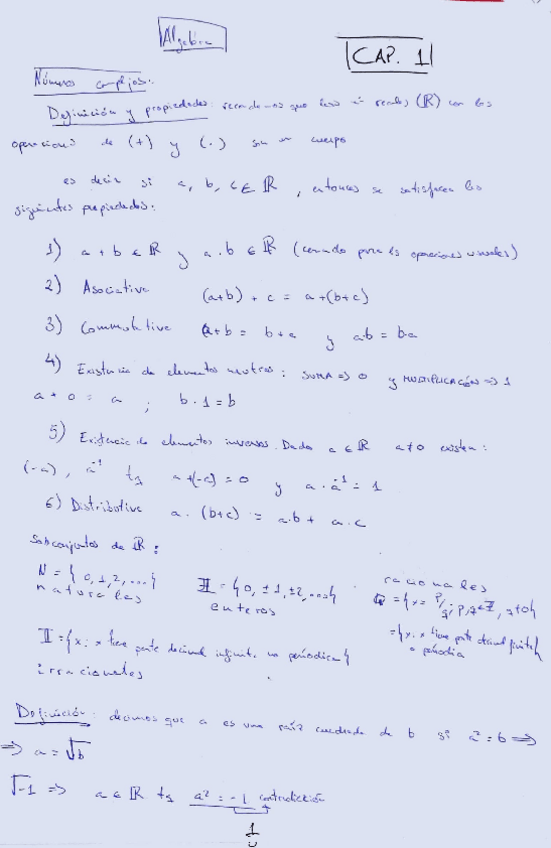 Algebra
CAP. 1
Números complejos.
Definición y propiedades: recordemos que los nº reales (ℝ) con las
operaciones de (+) y (·) son un cuerpo
es decir si a, b, c ∈ ℝ, entonces se satisfacen las
siguientes propiedades:
1) a + b ∈ ℝ y a·b ∈ ℝ (cerrado para las operaciones usuales)
2) Asociativa (a+b) + c = a+(b+c)
3) Conmutativa a+b = b+a y ab = ba
4) Existencia de elementos neutros: SUMA => 0 y MULTIPLICACIÓN => 1
a + 0 = a ; b·1 = b
5) Existencia de elementos inversos. Dado a ∈ ℝ a≠0 existen:
(-a), a⁻¹ tq a+(-a) = 0 y a·a⁻¹ = 1
6) Distributiva a·(b+c) = a·b + a·c
Subconjuntos de ℝ:
N = { 0, 1, 2, ...}
naturales
ℤ = {0, ±1, ±2, ...}
enteros
racionales
ℚ = {x = p/q ; p, q ∈ ℤ, q≠0}
= {x: x tiene parte decimal finita
o periódica
𝕀 = {x: x tiene parte decimal infinita no periódica}
irracionales
Definición: decimos que a es una raíz cuadrada de b si a² = b =>
=> a = √b
√-1 => a ∈ ℝ tq a² = -1 contradicción
1